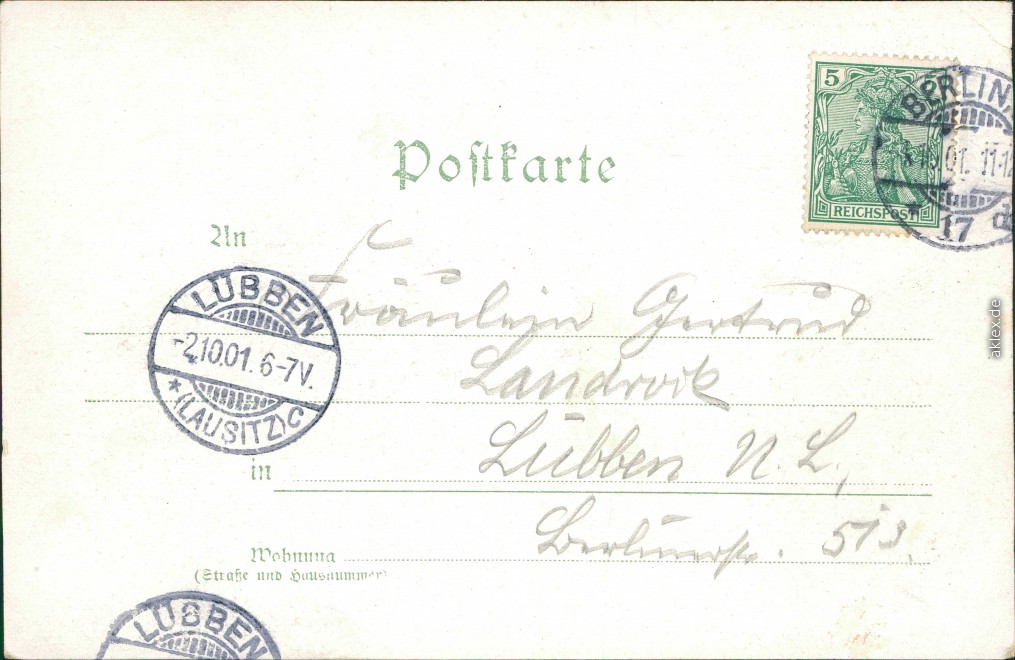 5
REICHSPOST
BERLIN
10.01. 11-12
17
Postkarte
An
Fräulein Gertrud
Landrock
in Lübben N. L.,
Wohnung Berlinerstr.
(Straße und Hausnummer)
LÜBBEN
-2.10.01. 6-7V.
* (LAUSITZ) C
LÜBBEN
aklex.de